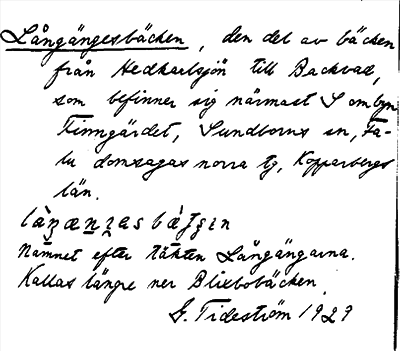 Långängesbäcken, den del av bäcken
från Hedkarlsjön till Backvad,
som befinner sig närmast S om byn
Finngärdet, Sundborns sn, Fa-
lu domsagas norra tg, Kopparbergs
län.
Namnet efter täkten Långängarna.
Kallas längre ner Blixbobäcken.
G. Tideström 1929